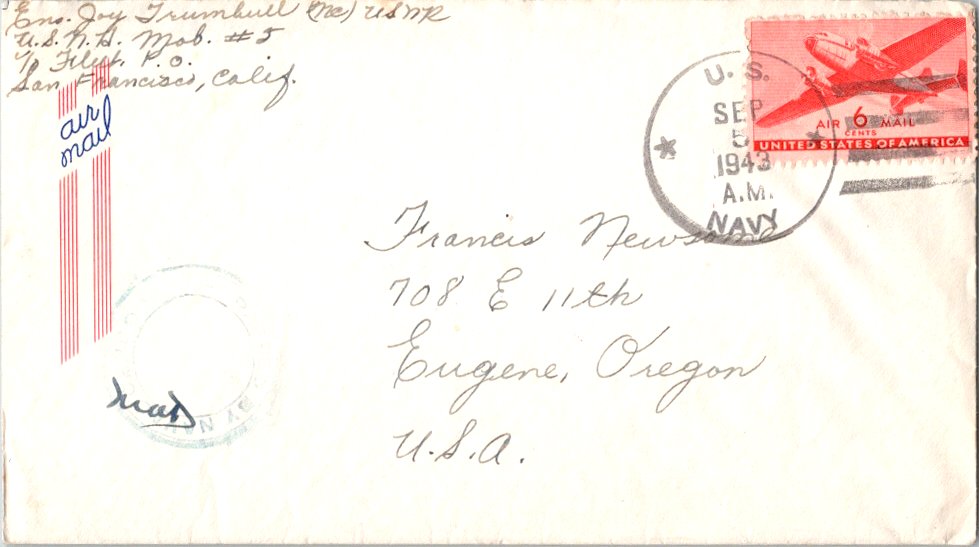 Ens. Joy Trumbull (NC) USNR
U.S.N.H. Mob. #5
c/o Fleet P.O.
San Francisco, Calif.
air
mail
U. S.
SEP
5
1943
A.M.
NAVY
AIR 6 MAIL
CENTS
UNITED STATES OF AMERICA
Francis Newsome
708 E 11th
Eugene, Oregon
U.S.A.